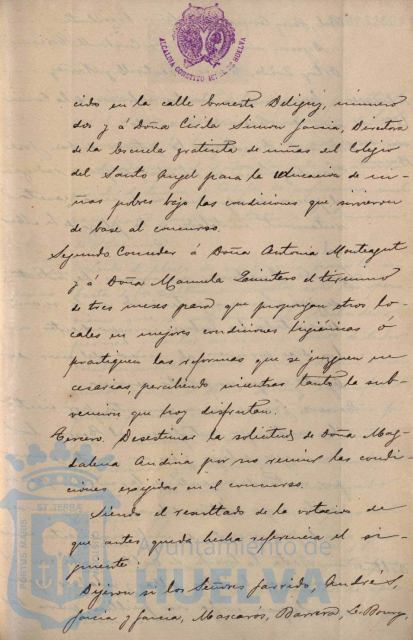 ALCALDIA CONSTITUCIONAL DE HUELVA
cido en la calle Ernesto Deligny, número
dos y á Doña Cirila Simon Garcia, Directora
de la Escuela gratuita de niñas del Colegio
del Santo Angel para la educacion de ni-
ñas pobres bajo las condiciones que sirvieron
de base al concurso.
Segundo. Conceder á Doña Antonia Monteagut
y á Doña Manuela Quintero el término
de tres meses para que propongan otros lo-
cales en mejores condiciones higiénicas ó
practiquen las reformas que se juzguen ne-
cesarias, percibiendo mientras tanto la sub-
vencion que hoy disfrutan.
Tercero. Desestimar la solicitud de Doña Mag-
dalena Andina por no reunir las condi-
ciones exigidas en el concurso.
Siendo el resultado de la votacion de
que antes queda hecha referencia el si-
guiente:
Dijeron si los Señores Garrido, Andres,
Garcia y Garcia, Mascarós, Barrera, Le Bourg,
PORTUS MARIS ET TERRÆ
Ayuntamiento de
HUELVA